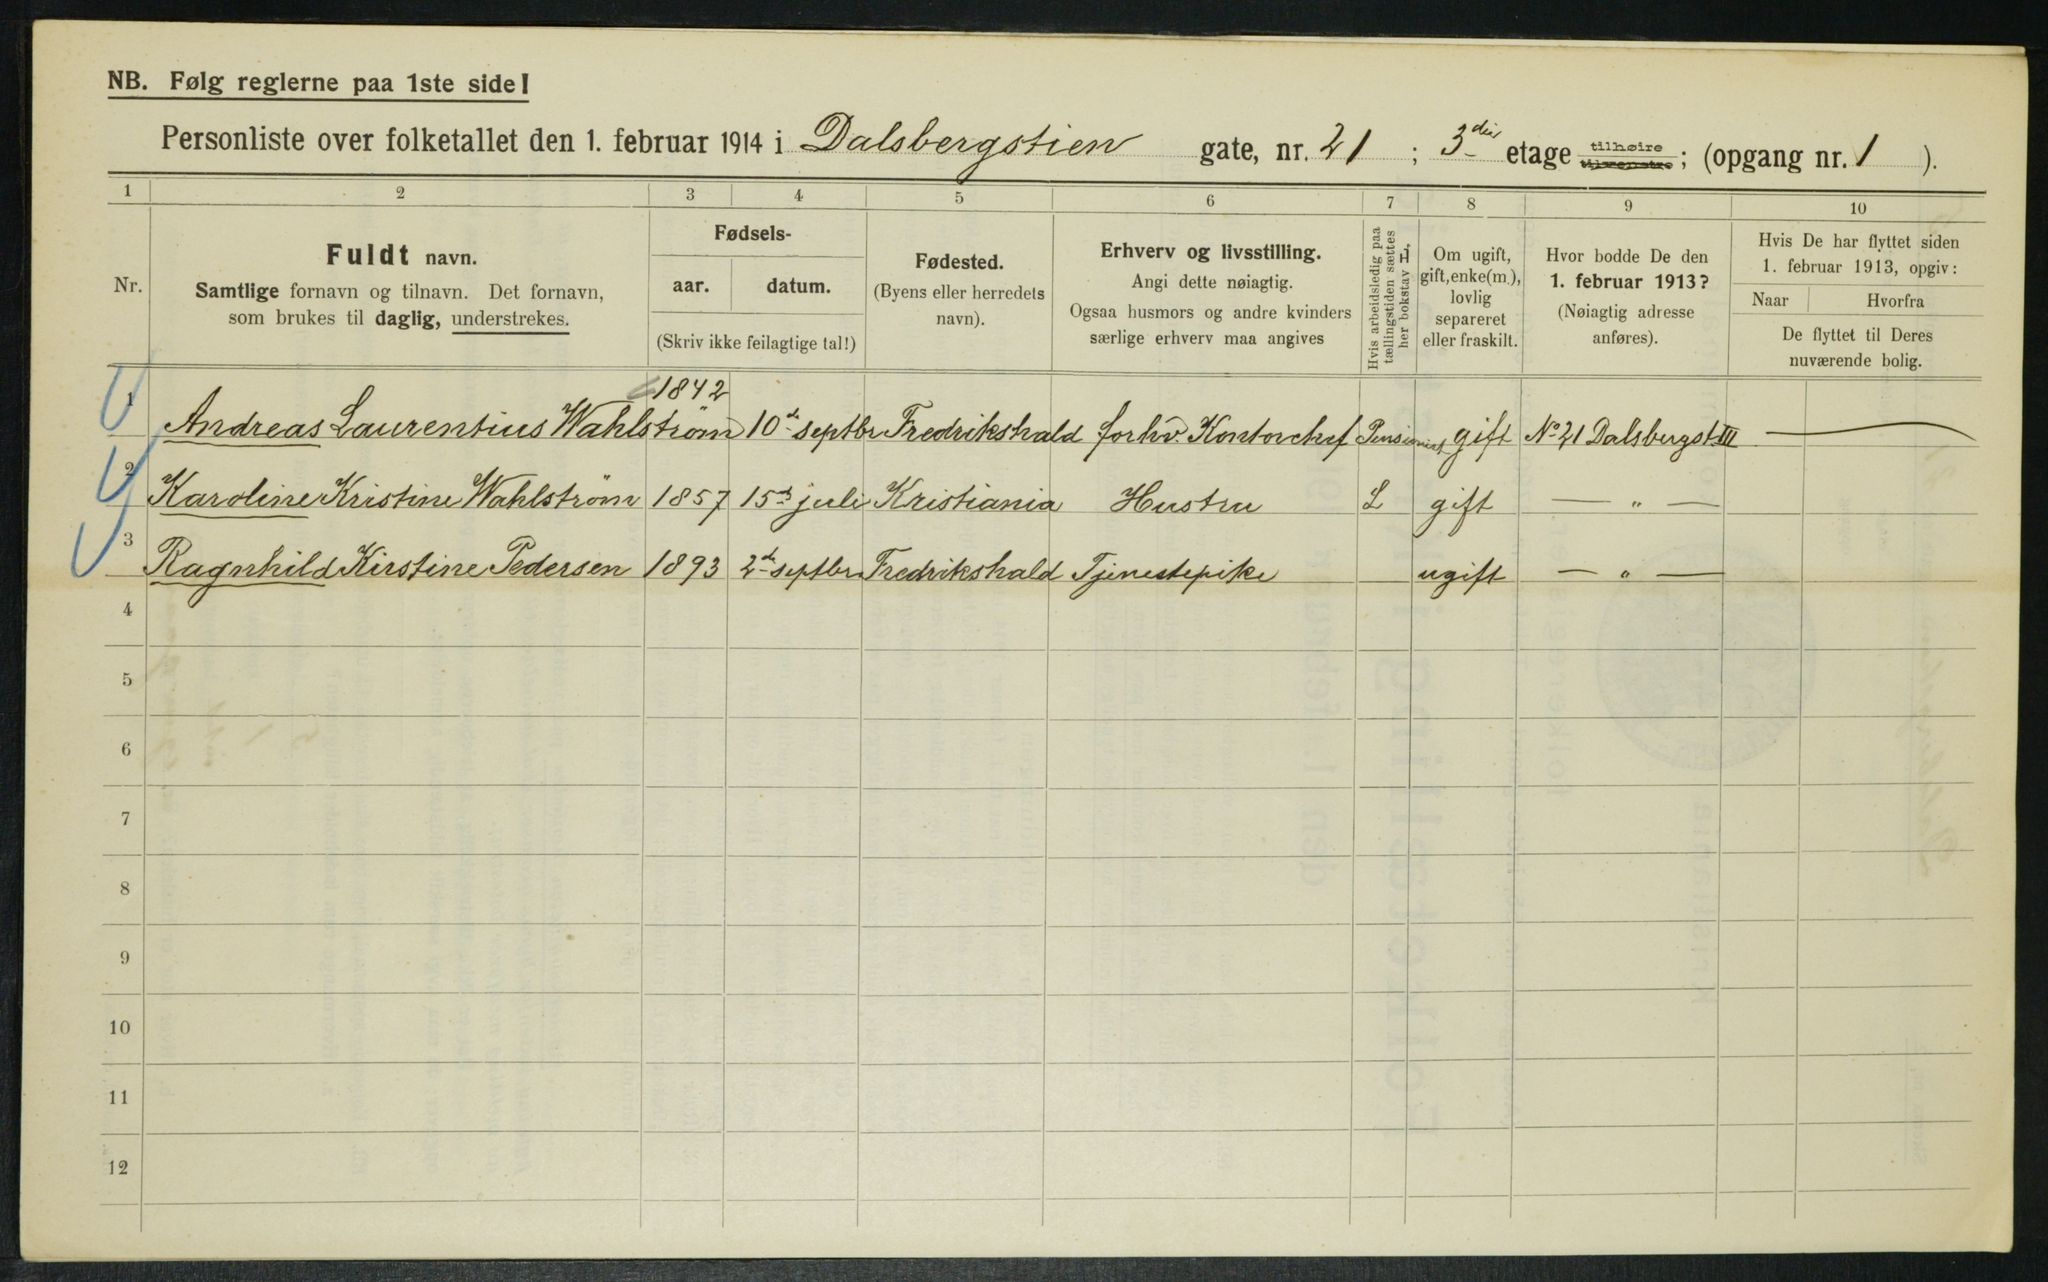 NB. Følg reglerne paa 1ste side!
Personliste over folketallet den 1. februar 1914 i Dalsbergstien gate, nr. 21 ; 3die etage tilhøire tilvenstre; (opgang nr. 1 ).
1 2 3 4 5 6 7 8 9 10
Nr.
Fuldt navn.
Samtlige fornavn og tilnavn. Det fornavn,
som brukes til daglig, understrekes.
Fødsels-
aar. datum.
(Skriv ikke feilagtige tal!)
Fødested.
(Byens eller herredets
navn).
Erhverv og livsstilling.
Angi dette nøiagtig.
Ogsaa husmors og andre kvinders
særlige erhverv maa angives
Hvis arbeidsledig paa
tællingstiden sættes
her bokstav L,
Om ugift,
gift, enke(m.),
lovlig
separeret
eller fraskilt.
Hvor bodde De den
1. februar 1913?
(Nøiagtig adresse
anføres).
Hvis De har flyttet siden
1. februar 1913, opgiv:
Naar Hvorfra
De flyttet til Deres
nuværende bolig.
1 Andreas Laurentius Wahlstrøm 1842 10de septbr Fredrikshald forhv. Kontorchef Pensionist gift No 21 Dalsbergst III —
2 Karoline Kristine Wahlstrøm 1857 15de juli Kristiania Hustru L gift — " —
3 Ragnhild Kirstine Pedersen 1893 2de septbr Fredrikshald Tjenestepike ugift — " —
4
5
6
7
8
9
10
11
12